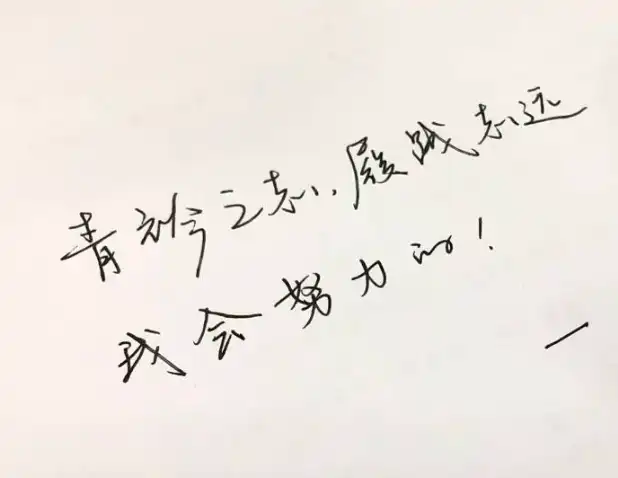 青衿之志，履践志远
我会努力的！